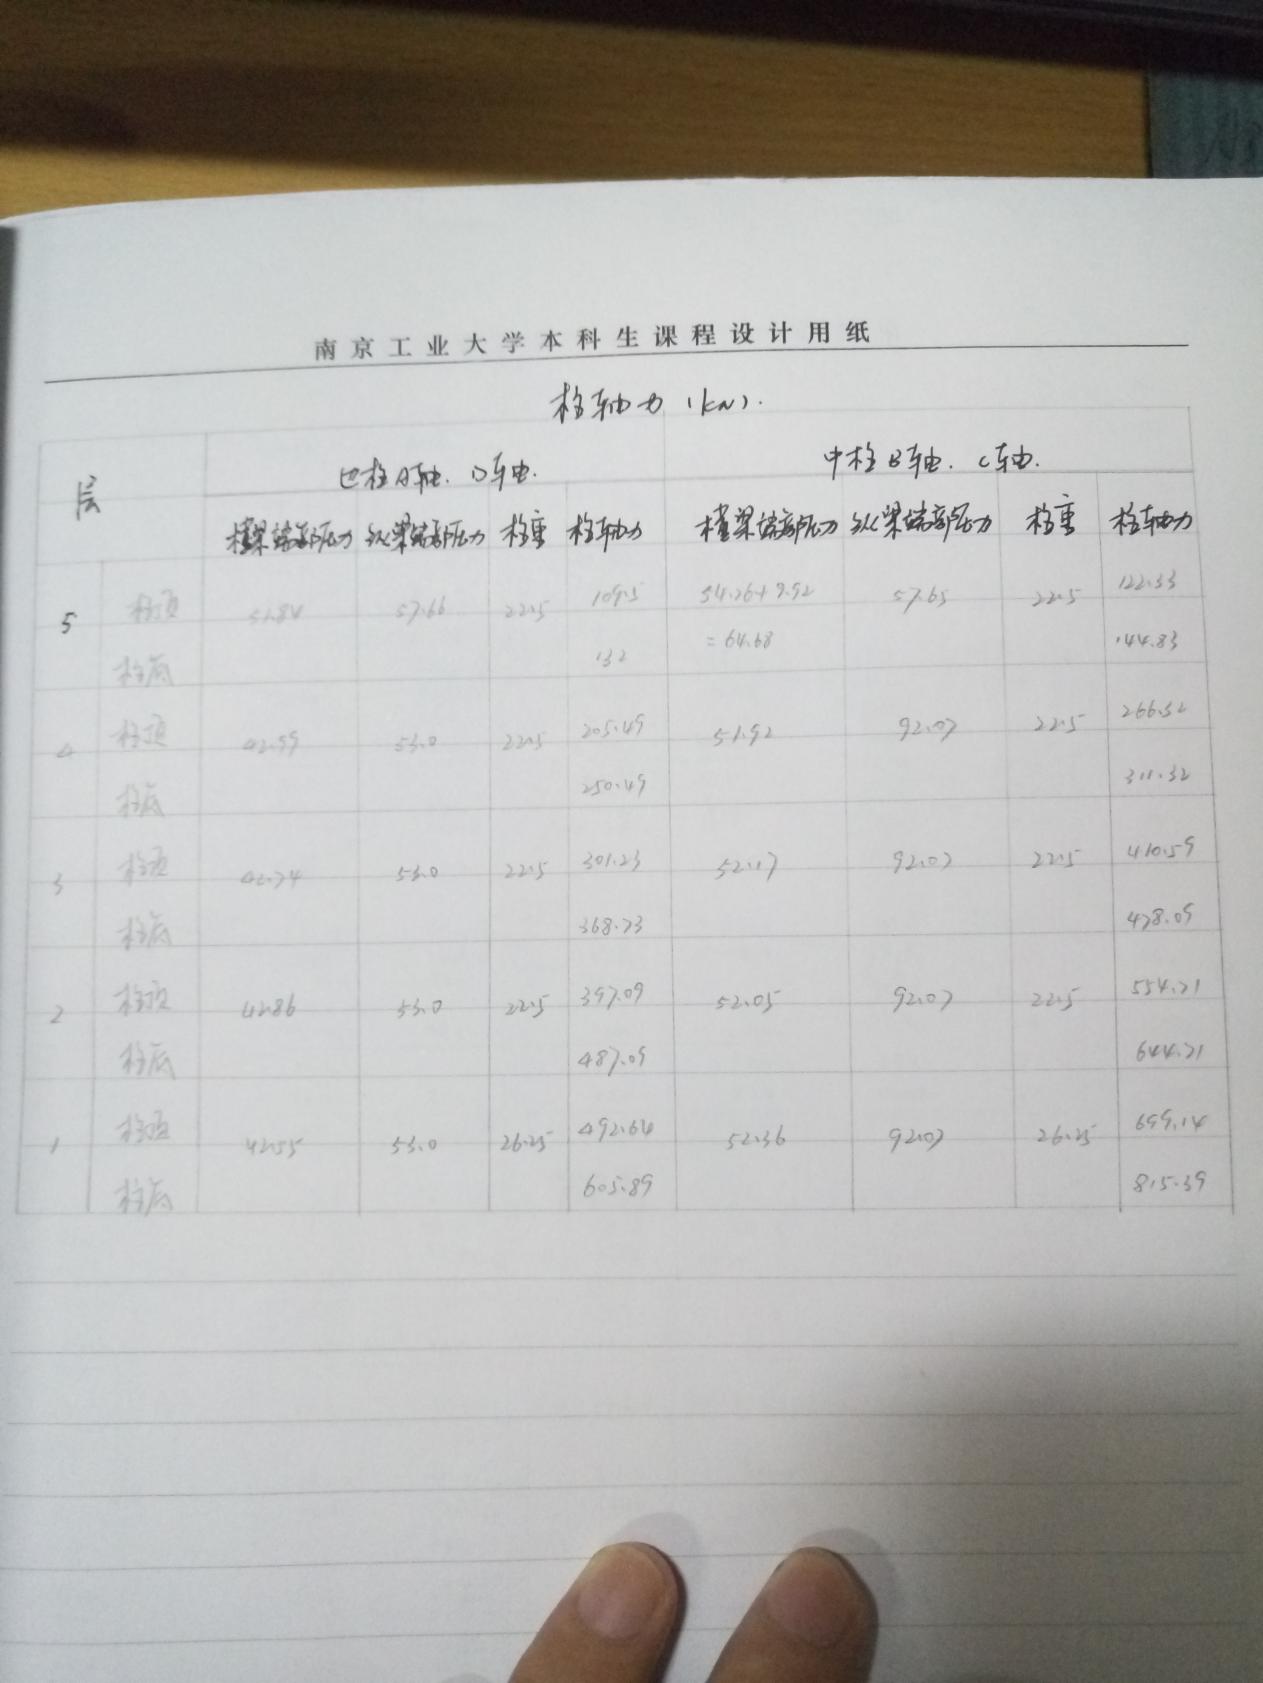 南京工业大学本科生课程设计用纸
柱轴力(kN).
层 边柱A轴. D轴. 中柱B轴. C轴.
横梁端部压力 纵梁端部压力 柱重 柱轴力 横梁端部压力 纵梁端部压力 柱重 柱轴力
5 柱顶 51.84 57.66 22.5 109.5 54.26+9.92 57.65 22.5 122.33
柱底 132 =64.68 144.83
4 柱顶 42.99 53.0 22.5 205.49 51.92 92.07 22.5 266.32
柱底 250.49 311.32
3 柱顶 42.74 53.0 22.5 301.23 52.17 92.07 22.5 410.59
柱底 368.73 478.09
2 柱顶 42.86 53.0 22.5 397.09 52.05 92.07 22.5 554.71
柱底 487.09 644.71
1 柱顶 42.55 53.0 26.25 492.64 52.36 92.07 26.25 699.14
柱底 605.89 815.39